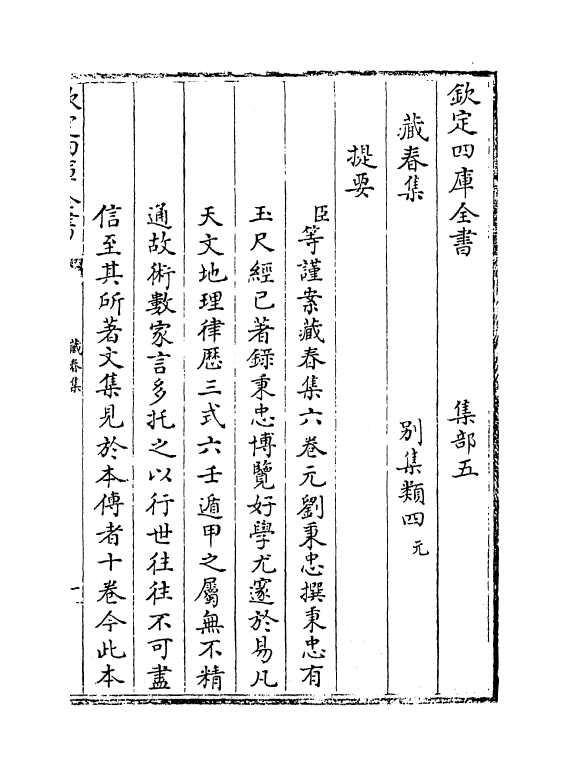 欽定四庫全書　集部五
藏春集　別集類四 元
提要
臣等謹案藏春集六卷元劉秉忠撰秉忠有
玉尺經已著錄秉忠博覽好學尤邃於易凡
天文地理律歷三式六壬遁甲之屬無不精
通故術數家言多托之以行世往往不可盡
信至其所著文集見於本傳者十卷今此本
欽定四庫全書
藏春集
一